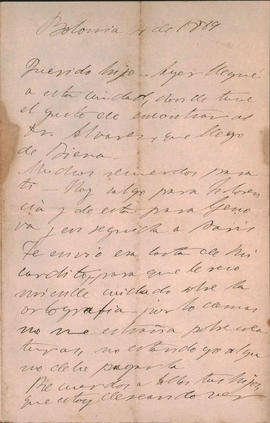 Bolonia 4 de 1889
Querido hijo – Ayer llegué
a esta ciudad, donde tuve
el gusto de encontrar al
Dr. Alvarez, que llegó
de Siena.
Muchos recuerdos para
ti – Hoy salgo para Floren
cia y de esta para Geno
va, en seguida a Paris
Te envio la carta de
Ricardito, para que le
cuidado sobre la
ortografia – por lo demas
no me estraña
no estando yo alguno
no debe pagarla
Recuerdos a todos tus hijos
que estoy deseando ver